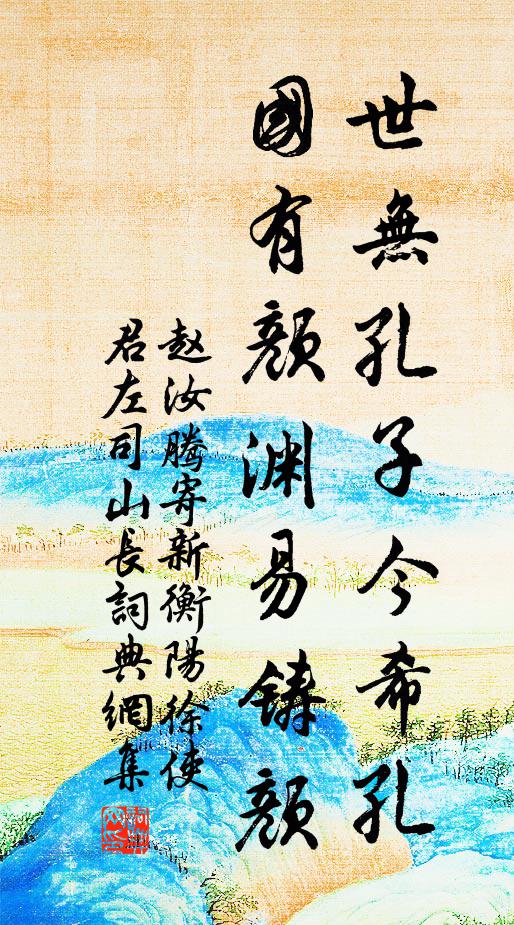 世無孔子今希孔
國有顏淵易鑄顏
赵汝騰寄新衡陽徐使
君左司山長詞典網集